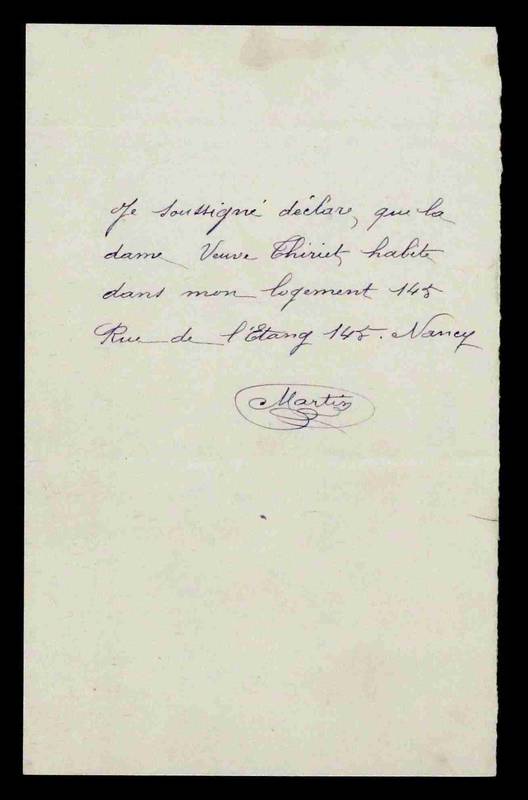 Je soussigné déclare, que la
dame Veuve Thiriet, habite
dans mon logement 145
Rue de l'Etang 145. Nancy
Martin